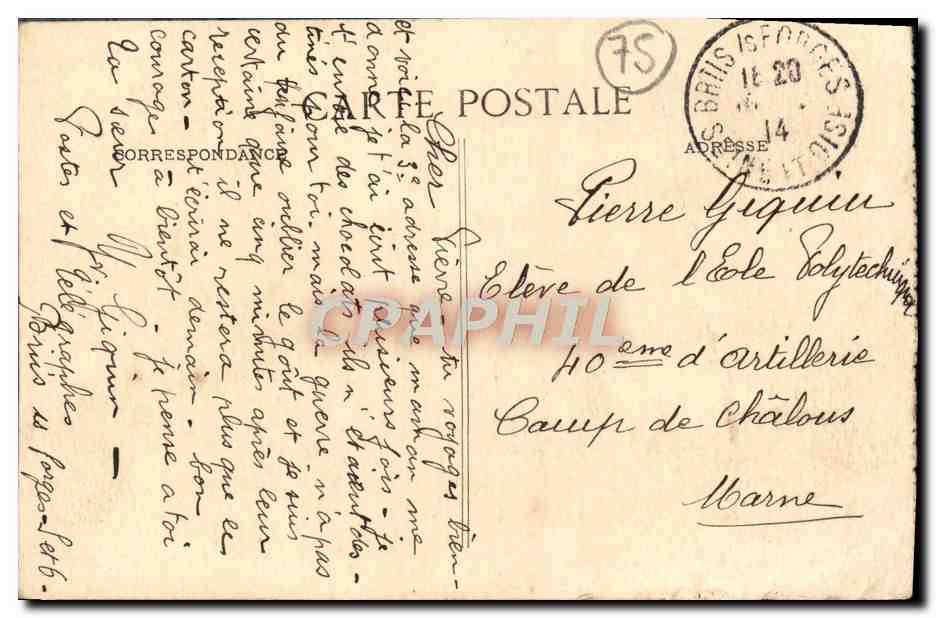 75
BRIIS Is FORGES
18 20
14
SEINE ET OISE
CARTE POSTALE
CORRESPONDANCE
ADRESSE
Pierre Giquin
Elève de l'Ecole Polytechnique
40eme d'artillerie
Camp de Châlons
Marne
Cher Pierre - tu voyages bien -
et voici la 3e adresse que maman me
donne, je t'ai écrit plusieurs fois - je
t'envoie des chocolats, ils n'étaient des-
tinés pour toi, mais la guerre n'a pas
du te faire oublier le goût et je suis
certaine que cinq minutes après leur
reception il ne restera plus que le
carton - t'écrirai demain - bon
courage à bientôt - je pense à toi
Ta sœur
Giquin
Postes et Télégraphes
Briis ss forges - S et O -
CPAPHIL